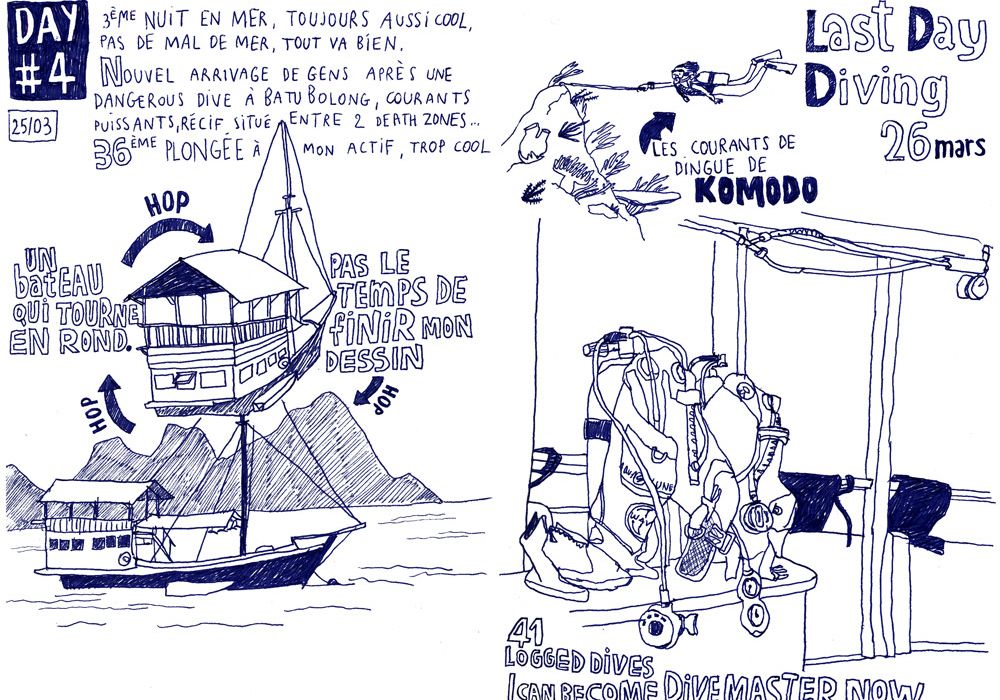 DAY
#4
25/03
3ÈME NUIT EN MER, TOUJOURS AUSSI COOL,
PAS DE MAL DE MER, TOUT VA BIEN.
NOUVEL ARRIVAGE DE GENS APRÈS UNE
DANGEROUS DIVE À BATU BOLONG, COURANTS
PUISSANTS, RÉCIF SITUÉ ENTRE 2 DEATH ZONES...
36ÈME PLONGÉE À MON ACTIF, TROP COOL
HOP
UN
bATEAU
QUI TOURNE
EN ROND.
PAS LE
TEMPS DE
fiNiR MON
DESSIN
HOP
HOP
Last Day
Diving
26 mars
LES COURANTS DE
DINGUE DE
KOMODO
41
LOGGED DIVES
I CAN BECOME DIVEMASTER NOW